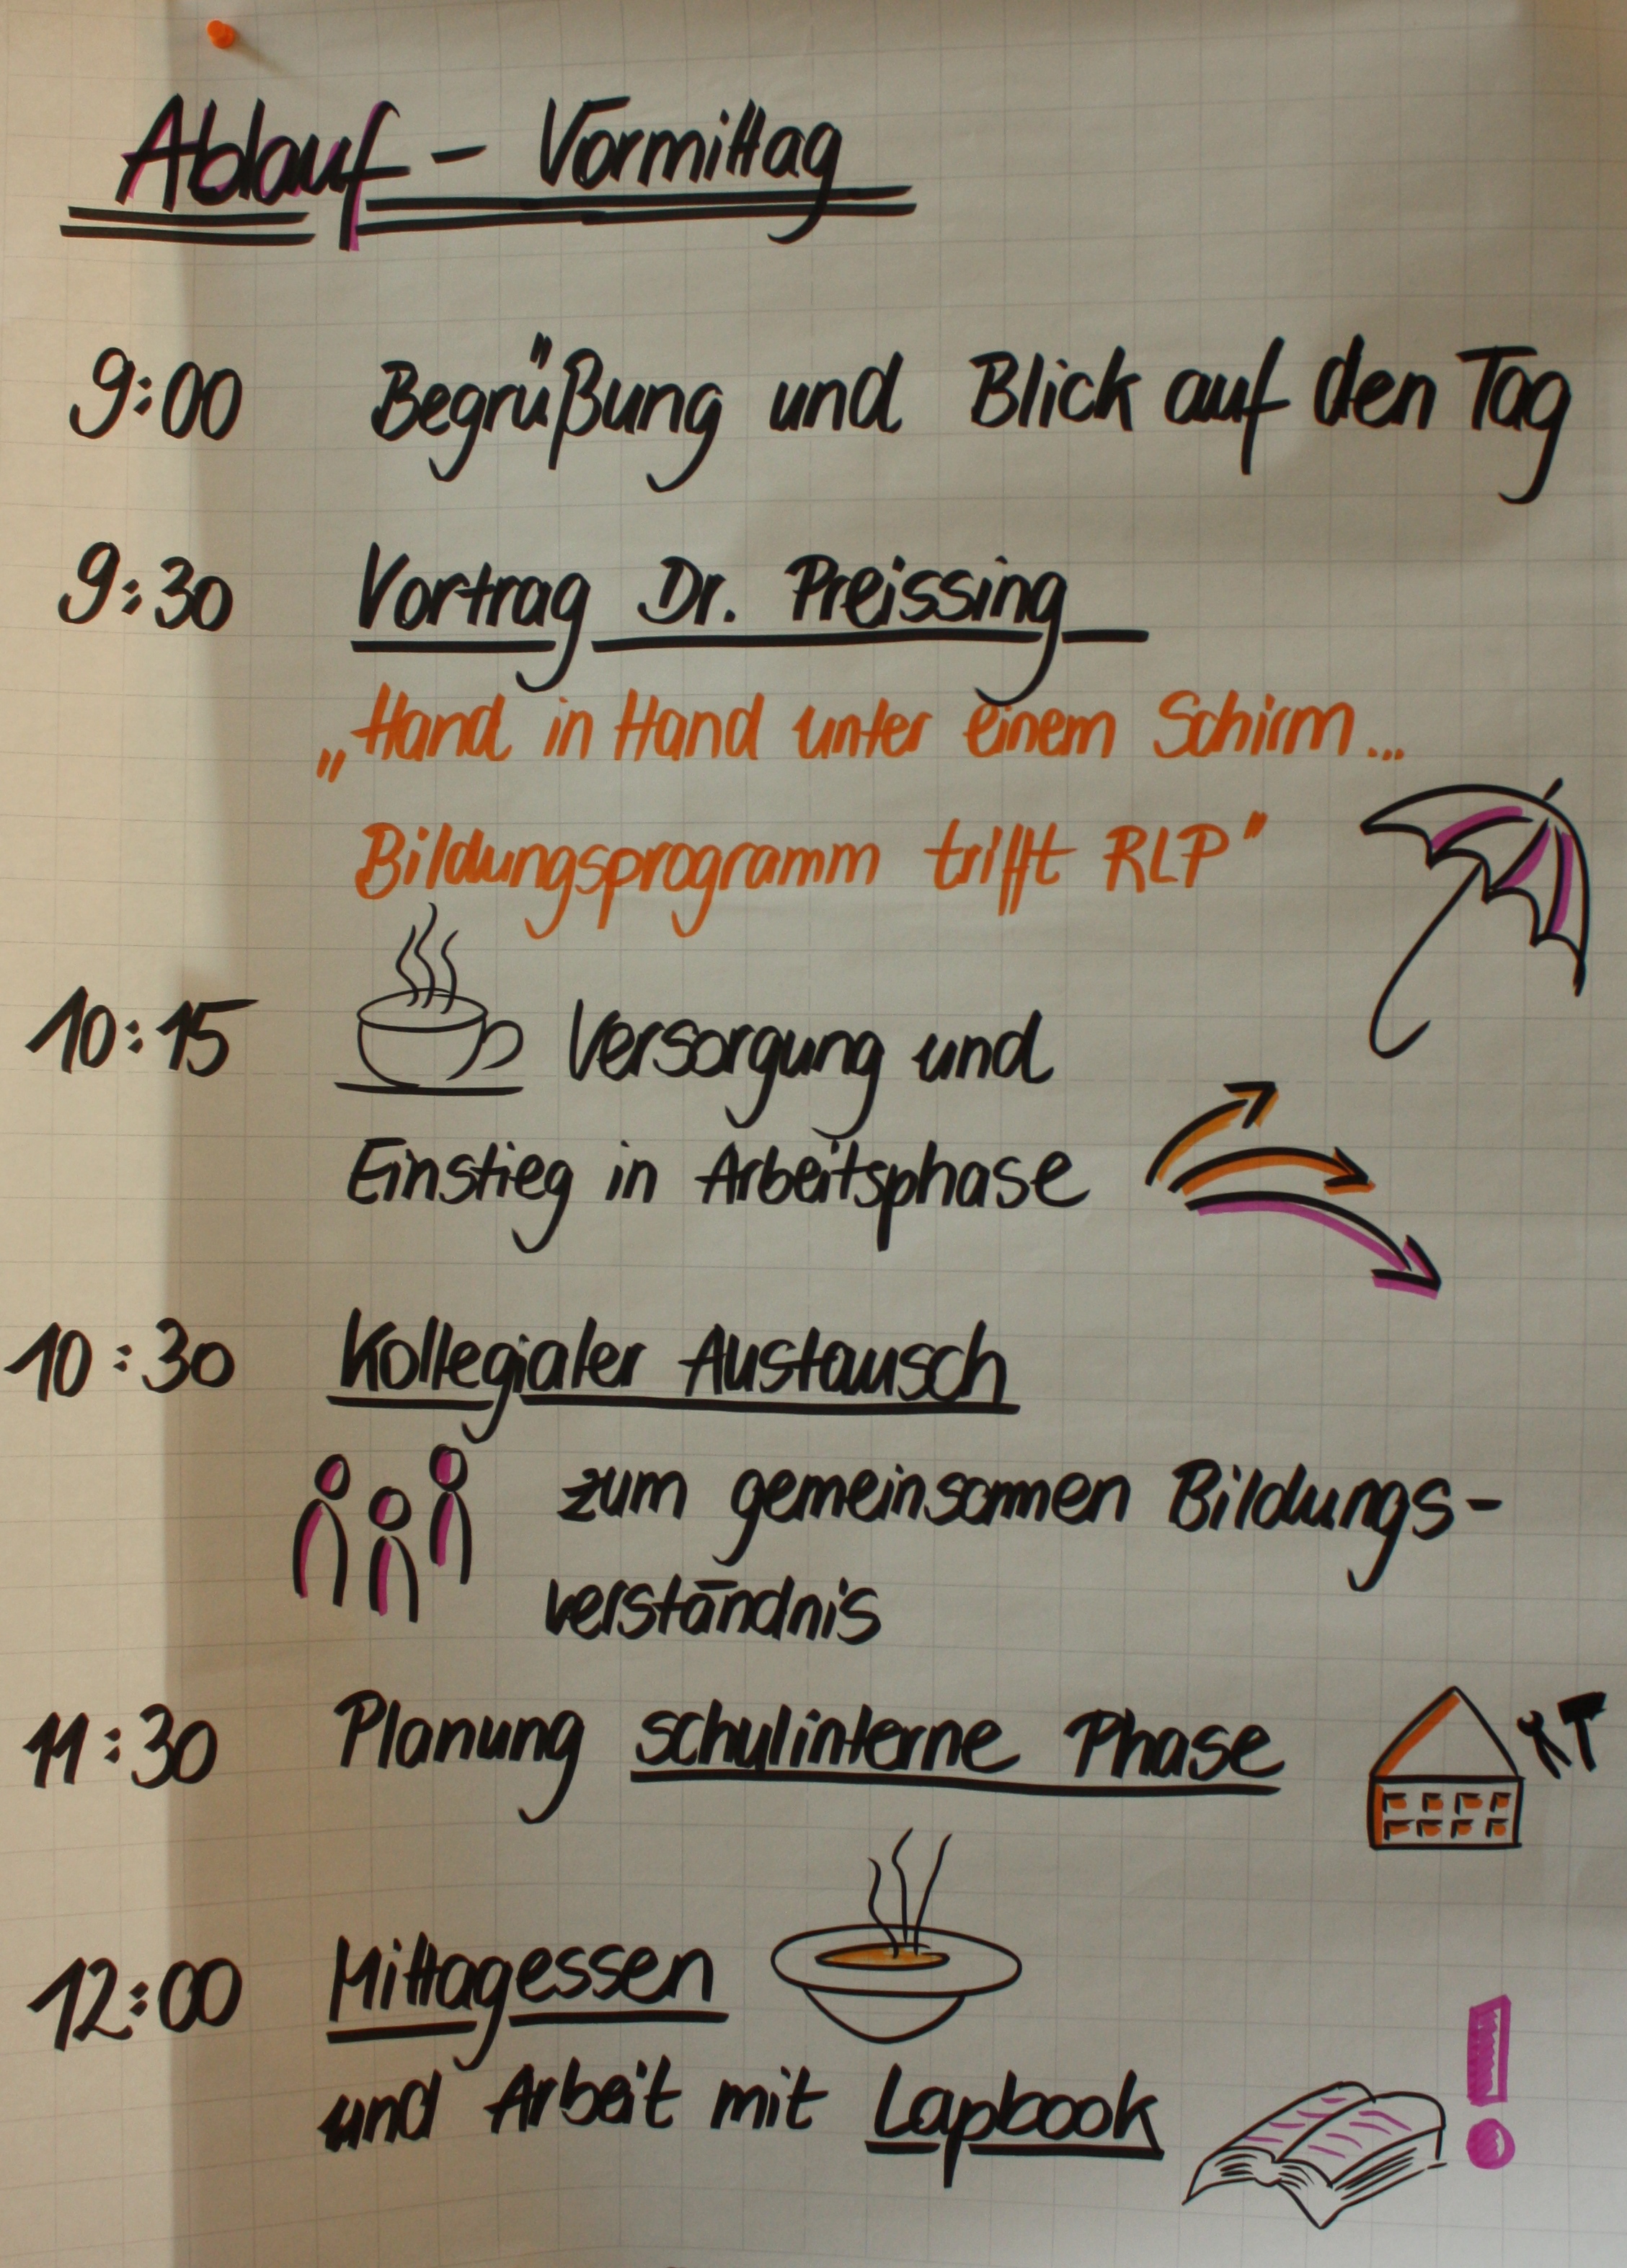 Ablauf - Vormittag
9:00 Begrüßung und Blick auf den Tag
9:30 Vortrag Dr. Preissing
„Hand in Hand unter einem Schirm...
Bildungsprogramm trifft RLP"
10:15 Versorgung und
Einstieg in Arbeitsphase
10:30 Kollegialer Austausch
zum gemeinsamen Bildungs-
verständnis
11:30 Planung schulinterne Phase
12:00 Mittagessen
und Arbeit mit Lapbook
!